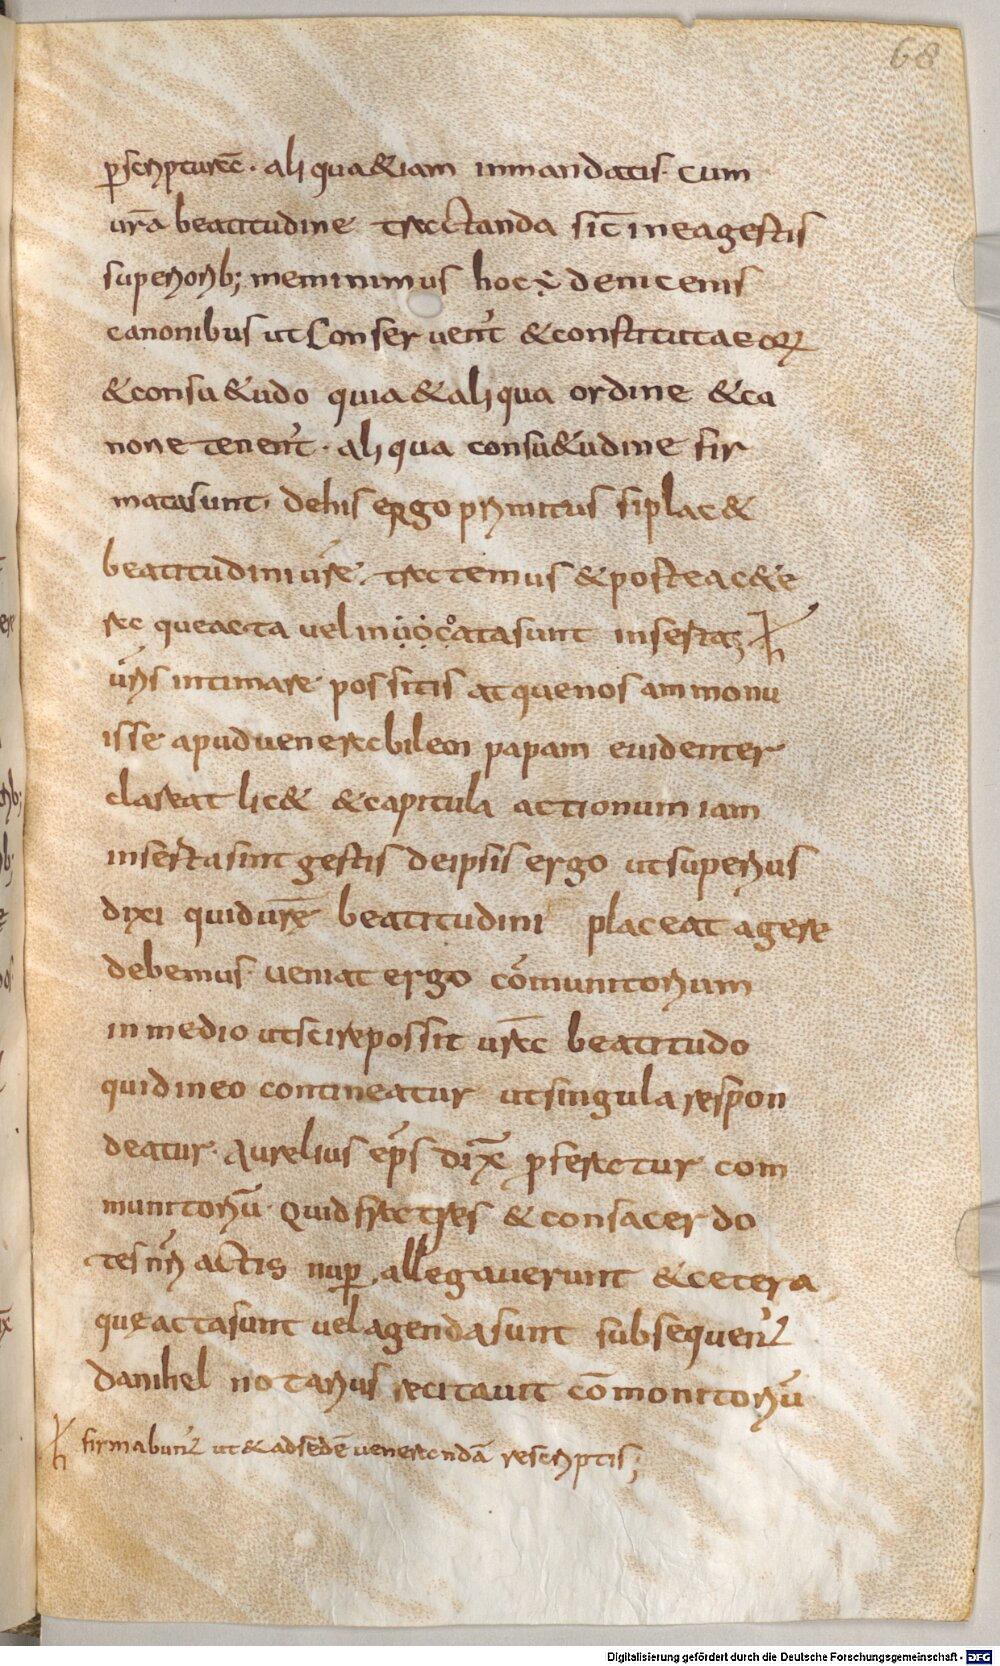 68
p̄scripturā · aliqua &iam inmandatis · cum
ur̄a beatitudine tractanda sic̄ ineagestis
superiorib; meminimus hoc ē denicenis
canonibus utconseruent̄ &constituta eorꝝ
&consu&udo quia &aliqua ordine &ca
none tenent̄ · aliqua consu&udine fir
matasunt · dehis ergo primitus siplac&
beatitudini ur̄e · tractemus &postea c&e
ra queacta uel inuocatasunt insertaq;
ur̄is intimare possitis atquenos ammonu
isse apuduenerabileon papam euidenter
clareat lic& &capitula actionum iam
insertasint gestis deipsis ergo utsuperius
dixi quidur̄ę beatitudini placeat agere
debemus · ueniat ergo cōmunitorium
inmedio utscirepossit ur̄a beatitudo
quidineo contineatur utsingula respon
deatur · Aurelius ep̄s dix̄ p̄feratur com
munitoriū · quidfratres &consacerdo
tes nr̄i actis nup̄ allegauerunt &cetera
quęactasunt uelagendasunt subsequent̄
danihel notarius recitauit cōmonitoriū
firmabunt̄ ut &adsedē uenerandā rescriptis;
Digitalisierung gefördert durch die Deutsche Forschungsgemeinschaft - DFG